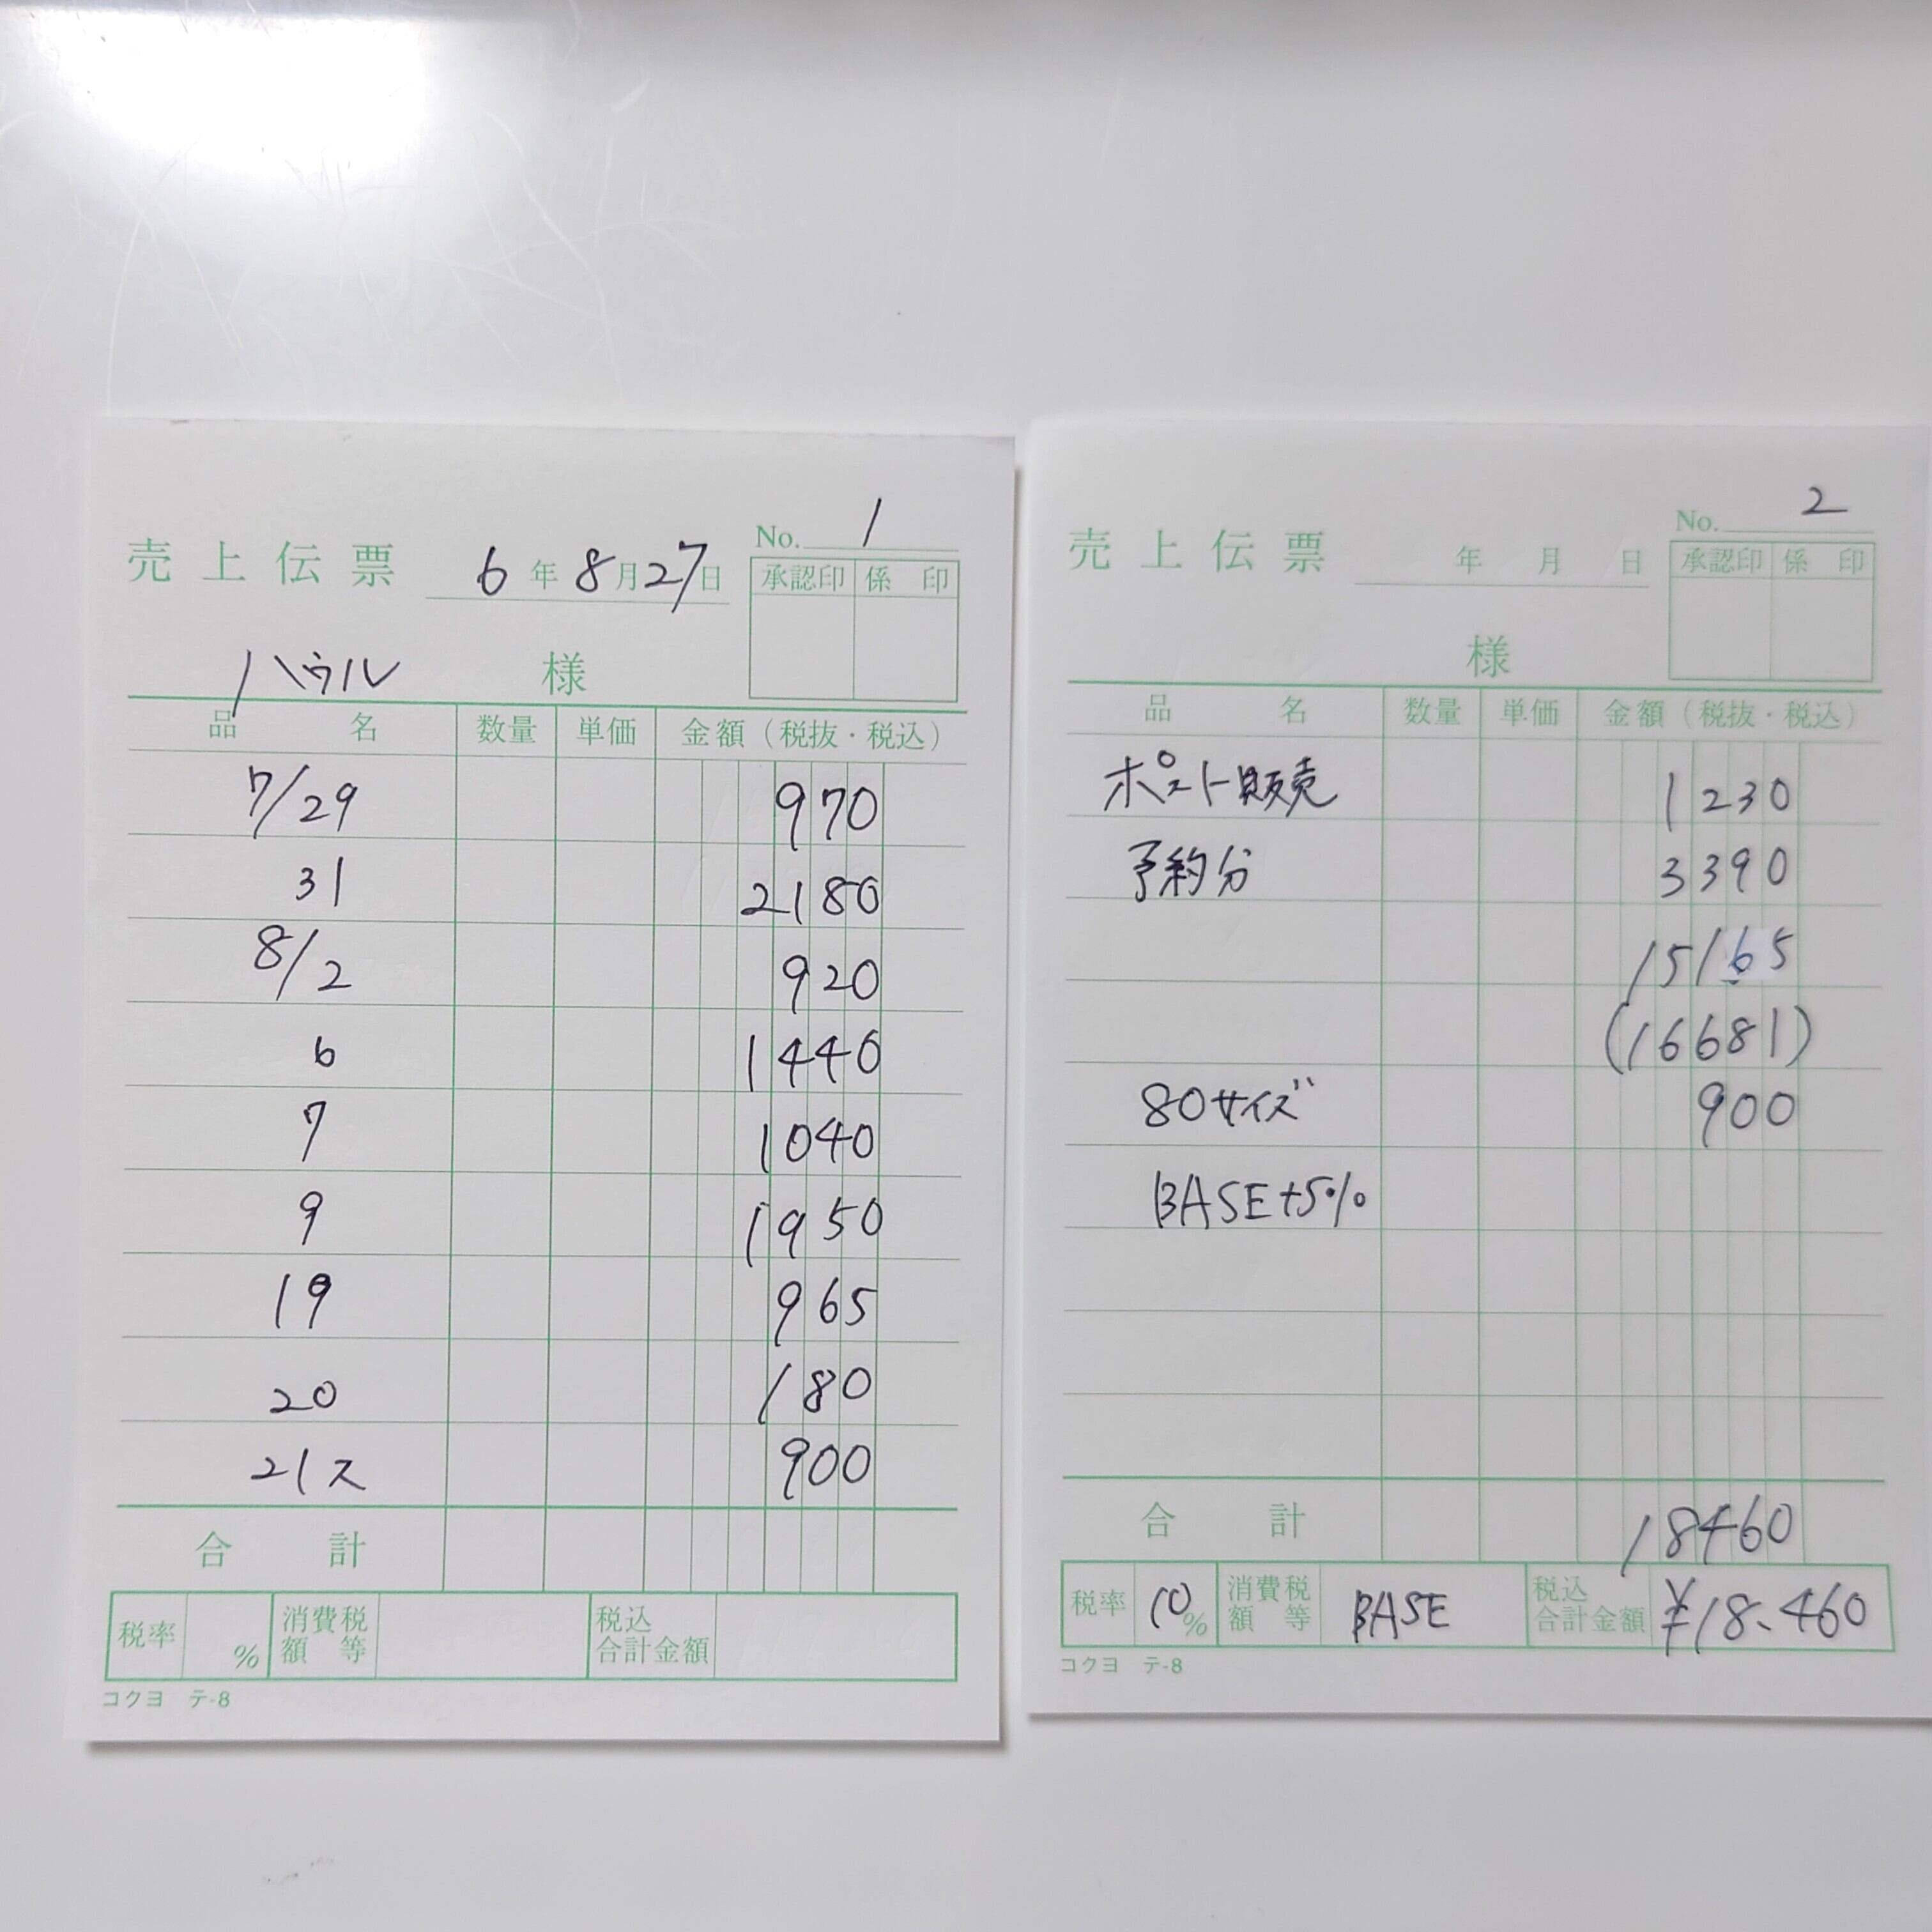 売上伝票 6年8月27日 No. 1
承認印 係印
ハウル 様
品名 数量 単価 金額(税抜・税込)
7/29 970
31 2180
8/2 920
6 1440
7 1040
9 1950
19 965
20 180
21ス 900
合計
税率 % 消費税額等 税込合計金額
コクヨ テ-8
売上伝票 年 月 日 No. 2
承認印 係印
様
品名 数量 単価 金額(税抜・税込)
ポスト販売 1230
予約分 3390
15165
(16681)
80サイズ 900
BASE+5%
合計 18460
税率 10% 消費税額等 BASE 税込合計金額 ¥18、460
コクヨ テ-8